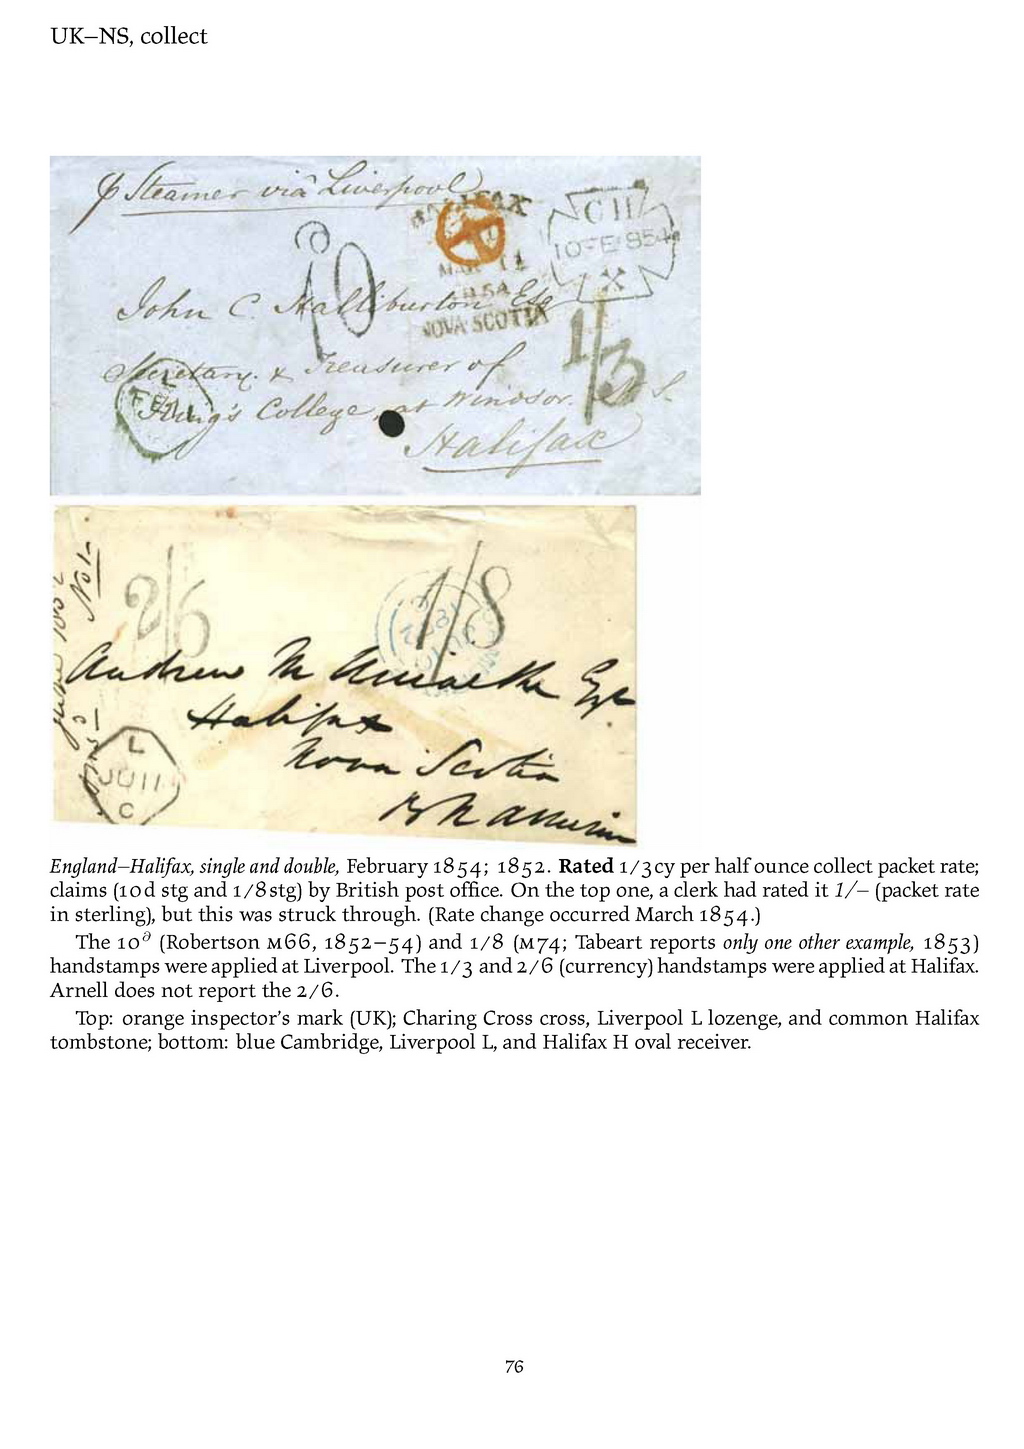 UK–NS, collect
p Steamer via Liverpool
HALIFAX
MAR 11
1854
NOVA SCOTIA
CH
10=FE=1854
X
10
1/3
John C. Halliburton Esq
Secretary & Treasurer of
King's College, at Windsor. N. S.
Halifax
L
FE11
2/6
1/8
No 1
Andrew M
Halifax
Nova Scotia
L
JU11
C
England–Halifax, single and double, February 1854; 1852. Rated 1/3cy per half ounce collect packet rate;
claims (10d stg and 1/8stg) by British post office. On the top one, a clerk had rated it 1/– (packet rate
in sterling), but this was struck through. (Rate change occurred March 1854.)
The 10∂ (Robertson M66, 1852–54) and 1/8 (M74; Tabeart reports only one other example, 1853)
handstamps were applied at Liverpool. The 1/3 and 2/6 (currency) handstamps were applied at Halifax.
Arnell does not report the 2/6.
Top: orange inspector's mark (UK); Charing Cross cross, Liverpool L lozenge, and common Halifax
tombstone; bottom: blue Cambridge, Liverpool L, and Halifax H oval receiver.
76